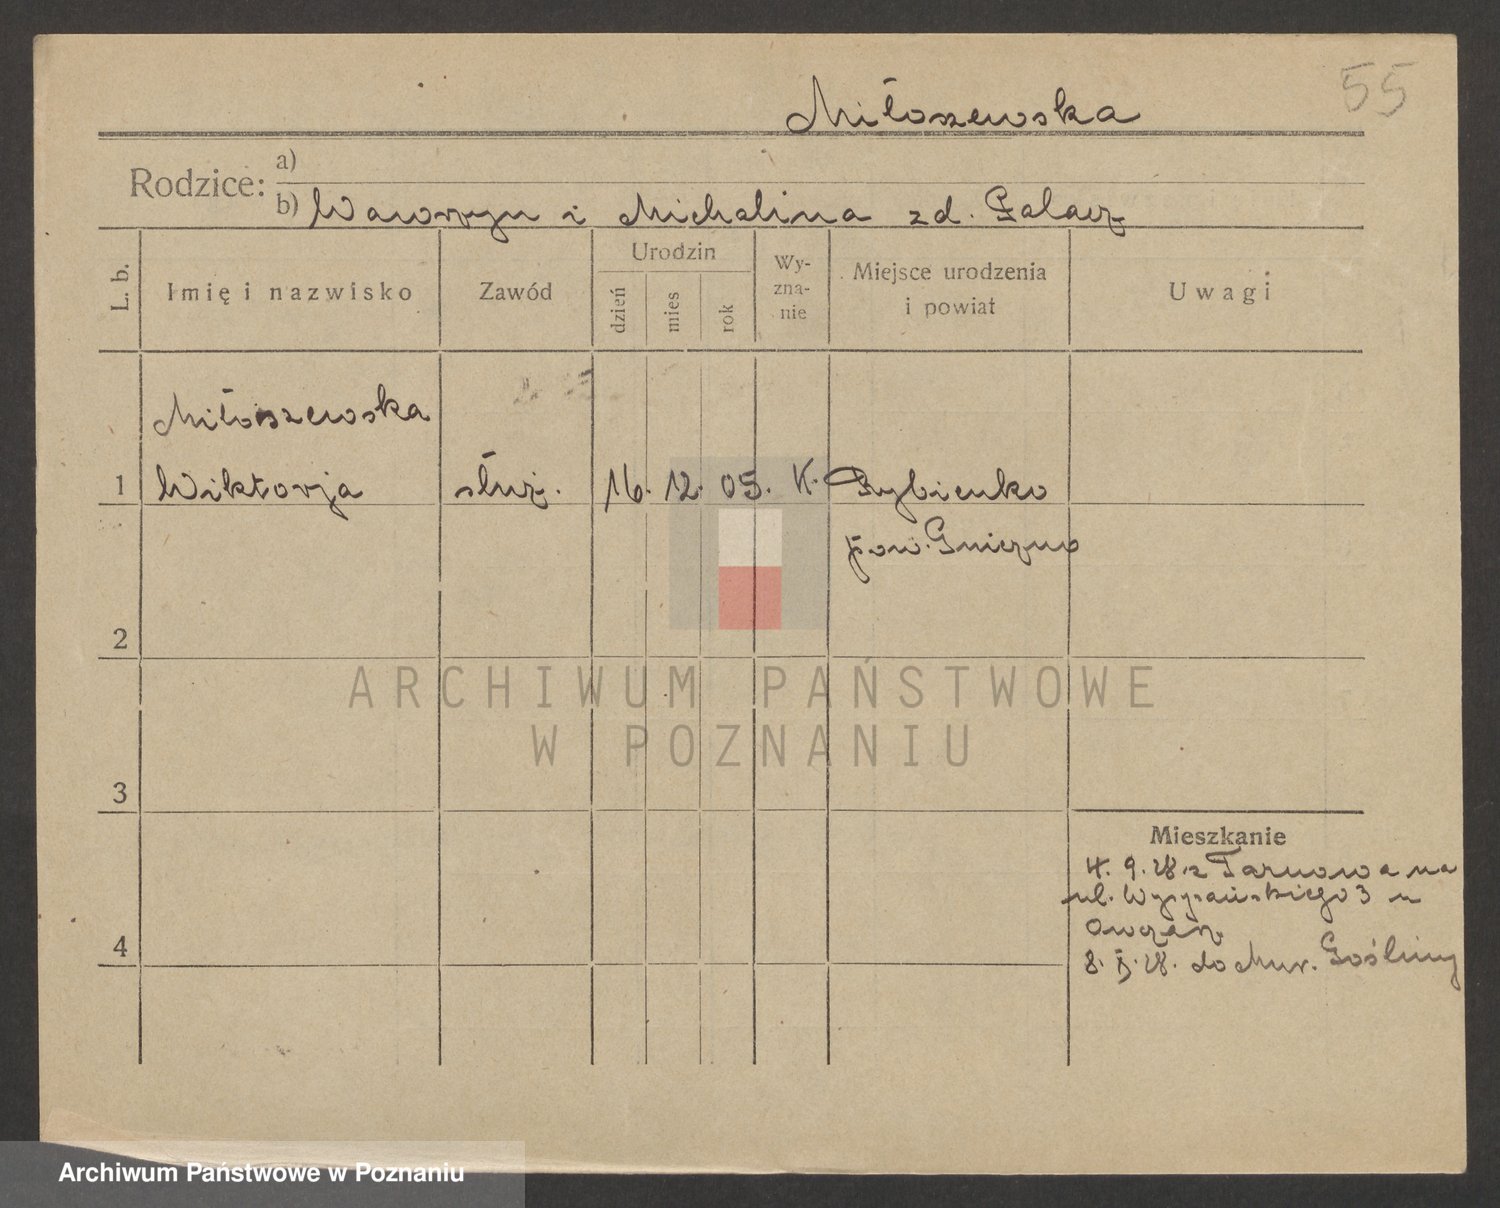 55
Miłoszewska
Rodzice: a)
b) Wawrzyn i Michalina zd. Galacz
L. b.
Imię i nazwisko
Zawód
Urodzin
dzień
mies
rok
Wy-
zna-
nie
Miejsce urodzenia
i powiat
Uwagi
Miłoszewska
1 Wiktorja służ. 16. 12. 05. K. Rybienko
pow. Gniezno
2
ARCHIWUM PAŃSTWOWE
W POZNANIU
3
Mieszkanie
4. 9. 28 z Tarnowa na
ul. Wyspiańskiego 3 u
4
8. X. 28. do Mur. Gośliny
Archiwum Państwowe w Poznaniu